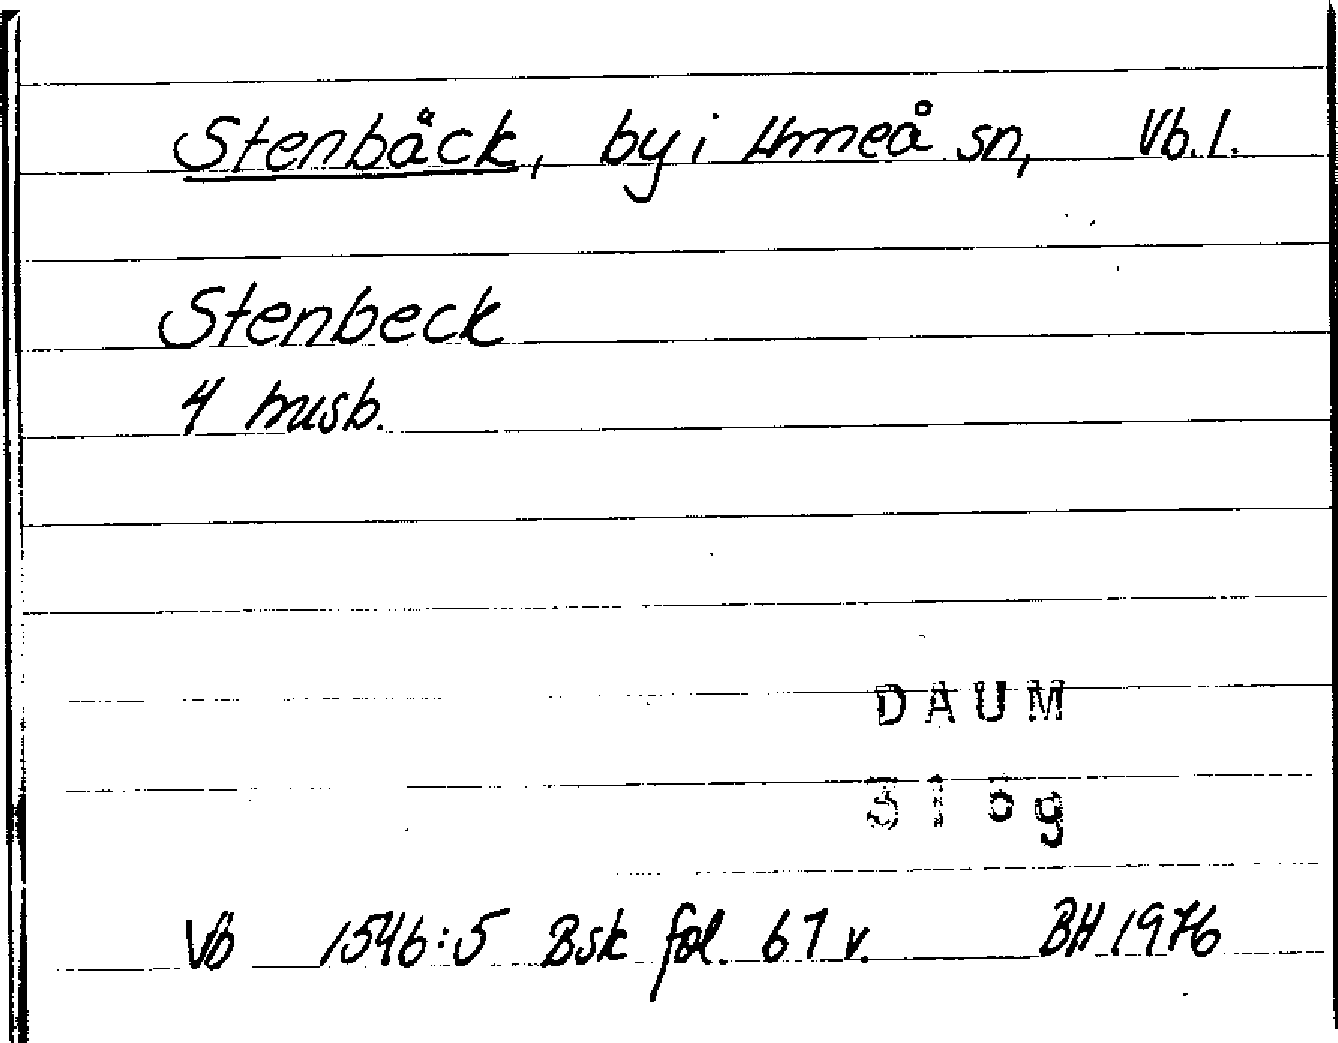 Stenbäck, by i Umeå sn, Vb. l.
Stenbeck
4 husb.
DAUM
Vb 1546:5 Bsk fol. 67 v. BH 1976